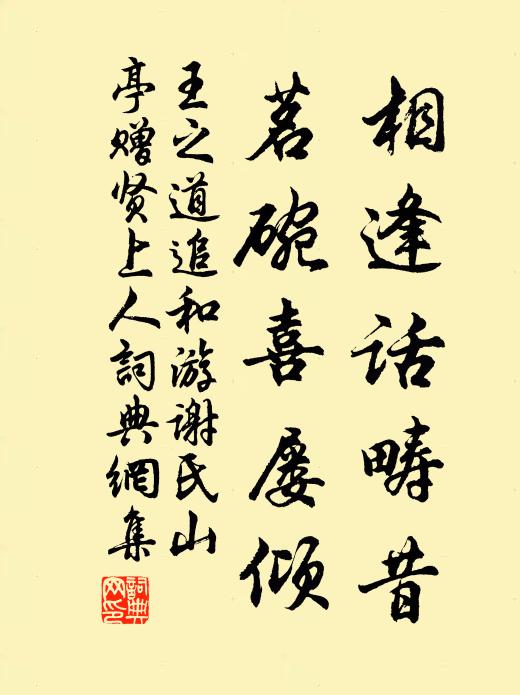 相逢话畴昔
茗碗喜屡倾
王之道追和游谢氏山
亭赠贤上人詞典網集